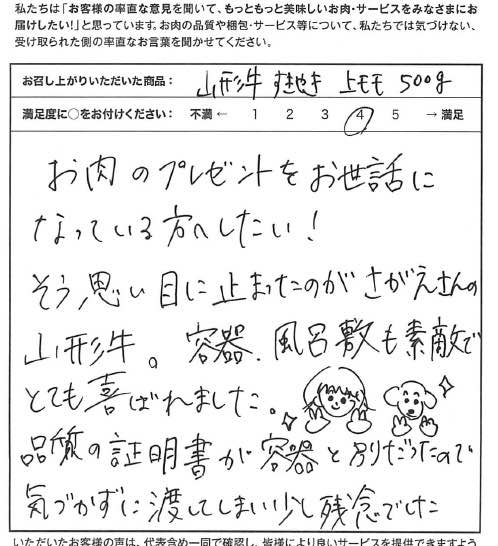 私たちは「お客様の率直な意見を聞いて、もっともっと美味しいお肉・サービスをみなさまにお
届けしたい!」と思っています。お肉の品質や梱包・サービス等について、私たちでは気づけない、
受け取られた側の率直なお言葉を聞かせてください。
お召し上がりいただいた商品： 山形牛 すきやき 上モモ 500g
満足度に○をお付けください： 不満 ← 1 2 3 4 5 → 満足
お肉のプレゼントをお世話に
なっている方へしたい!
そう思い目に止まったのがさがえさんの
山形牛。容器、風呂敷も素敵で
とても喜ばれました。
品質の証明書が容器と別りだったので
気づかずに渡してしまい少し残念でした
いただいたお客様の声は、代表含め一同で確認し、皆様により良いサービスを提供できますよう